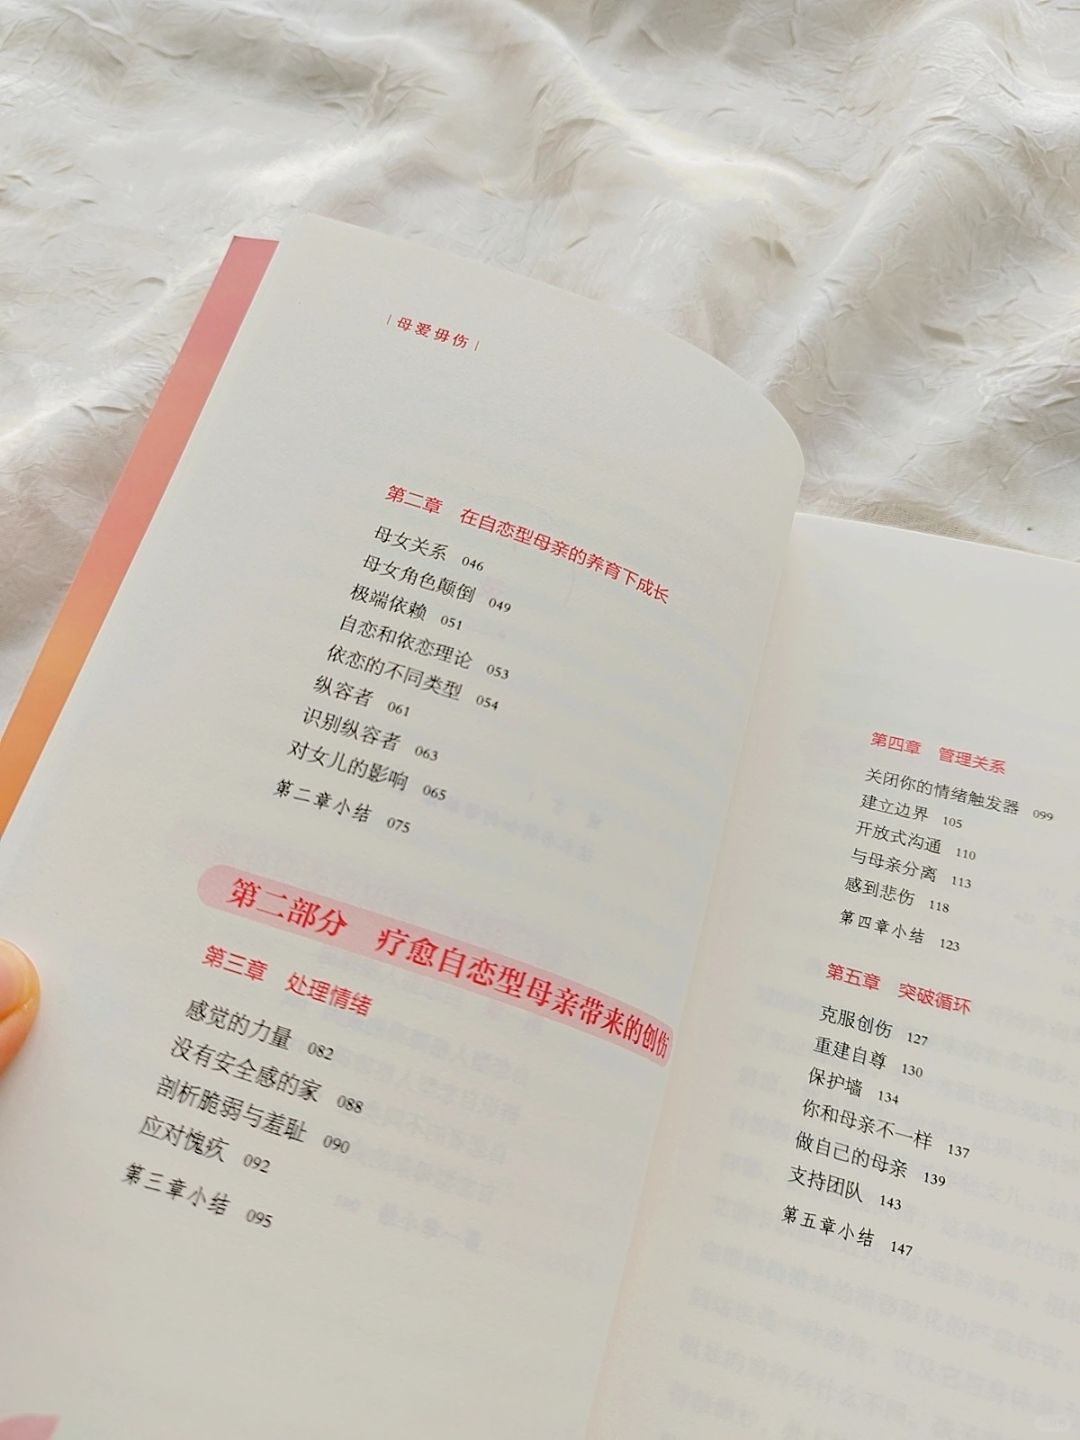 |母爱毋伤|
第二章 在自恋型母亲的养育下成长
母女关系 046
母女角色颠倒 049
极端依赖 051
自恋和依恋理论 053
依恋的不同类型 054
纵容者 061
识别纵容者 063
对女儿的影响 065
第二章小结 075
第二部分 疗愈自恋型母亲带来的创伤
第三章 处理情绪
感觉的力量 082
没有安全感的家 088
剖析脆弱与羞耻 090
应对愧疚 092
第三章小结 095
第四章 管理关系
关闭你的情绪触发器 099
建立边界 105
开放式沟通 110
与母亲分离 113
感到悲伤 118
第四章小结 123
第五章 突破循环
克服创伤 127
重建自尊 130
保护墙 134
你和母亲不一样 137
做自己的母亲 139
支持团队 143
第五章小结 147